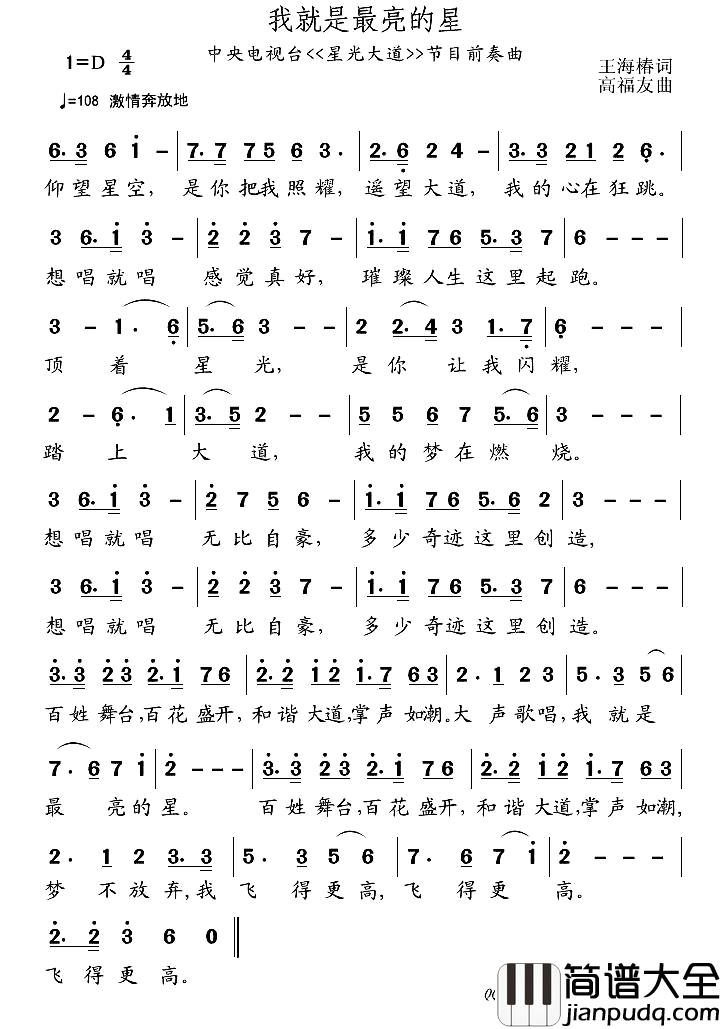 我就是最亮的星
中央电视台<<星光大道>>节目前奏曲
1=D 4/4
王海椿词
高福友曲
♩=108 激情奔放地
6. 3 6 1 - | 7. 7 7 5 6 3. | 2. 6 2 4 - | 3. 3 2 1 2 6. |
仰望星空, 是你把我照耀, 遥望大道, 我的心在狂跳。
3 6. 1 3 - | 2 2 3 7 - | 1. 1 7 6 5. 3 7 | 6 - - - |
想唱就唱 感觉真好, 璀璨人生这里起跑。
3 - 1. 6 | 5. 6 3 - - | 2 2. 4 3 1. 7 | 6 - - - |
顶着星光, 是你让我闪耀,
2 - 6. 1 | 3. 5 2 - - | 5 5 6 7 5. 6 | 3 - - - |
踏上大道, 我的梦在燃烧。
3 6. 1 3 - | 2 7 5 6 - | 1. 1 7 6 5. 6 2 | 3 - - - |
想唱就唱 无比自豪, 多少奇迹这里创造,
3 6. 1 3 - | 2 2 3 7 - | 1. 1 7 6 5. 3 7 | 6 - - - |
想唱就唱 无比自豪, 多少奇迹这里创造。
3. 3 2 3 2. 1 7 6 | 2. 2 1 2 1. 7 6 3 | 2. 1 2 3 | 5. 3 5 6 |
百姓舞台,百花盛开,和谐大道,掌声如潮。大声歌唱,我就是
7. 6 7 1 | 2 - - - | 3. 3 2 3 2. 1 7 6 | 2. 2 1 2 1. 7 6 3 |
最亮的星。 百姓舞台,百花盛开,和谐大道,掌声如潮,
2. 1 2 3. 3 | 5. 3 5 6 | 7. 6 7 1 | 2 - - - |
梦不放弃,我飞得更高,飞得更高。
2. 2 3 6 0 ‖
飞得更高。
简谱大全
jianpudq.com